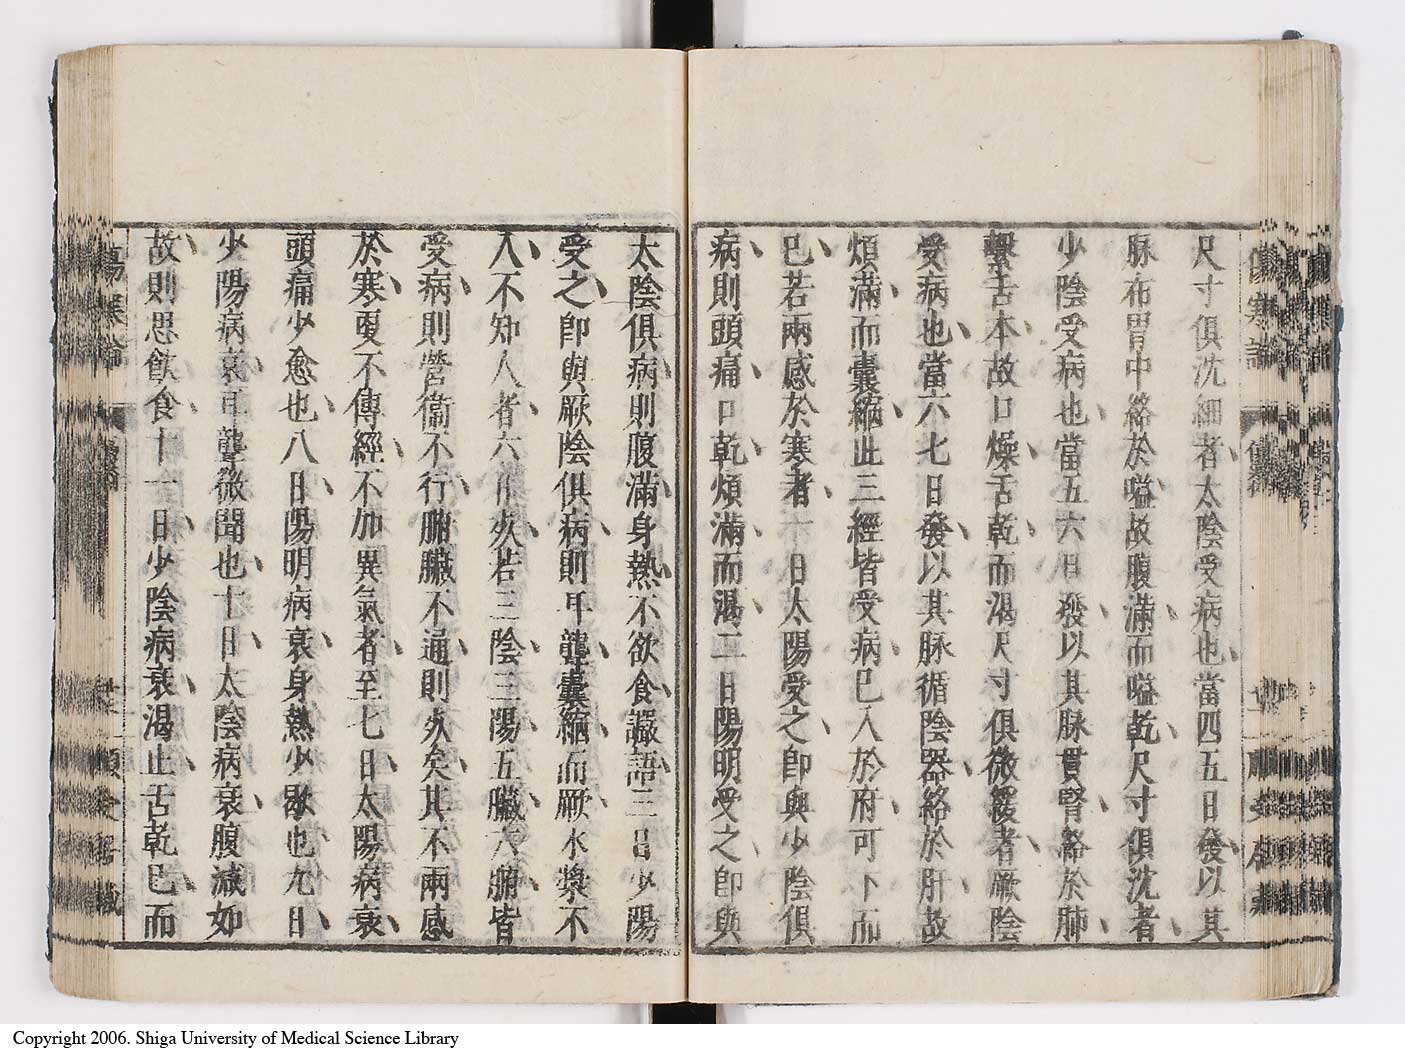 尺寸俱沈細者太陰受病也當四五日發以其
脉布胃中絡於嗌故腹滿而嗌乾尺寸俱沈者
少陰受病也當五六日發以其脉貫腎絡於肺
繫舌本故口燥舌乾而渴尺寸俱微緩者厥陰
受病也當六七日發以其脉循陰器絡於肝故
煩滿而囊縮此三經皆受病已入於府可下而
已若兩感於寒者一日太陽受之卽與少陰俱
病則頭痛口乾煩滿而渴二日陽明受之卽與
太陰俱病則腹滿身熱不欲食讝語三日少陽
受之卽與厥陰俱病則耳聾囊縮而厥水漿不
入不知人者六日死若三陰三陽五臟六腑皆
受病則營衞不行腑臟不通則死矣其不兩感
於寒更不傳經不加異氣者至七日太陽病衰
頭痛少愈也八日陽明病衰身熱少歇也九日
少陽病衰耳聾微聞也十日太陰病衰腹減如
故則思飲食十一日少陰病衰渴止舌乾已而
傷寒論
Copyright 2006. Shiga University of Medical Science Library